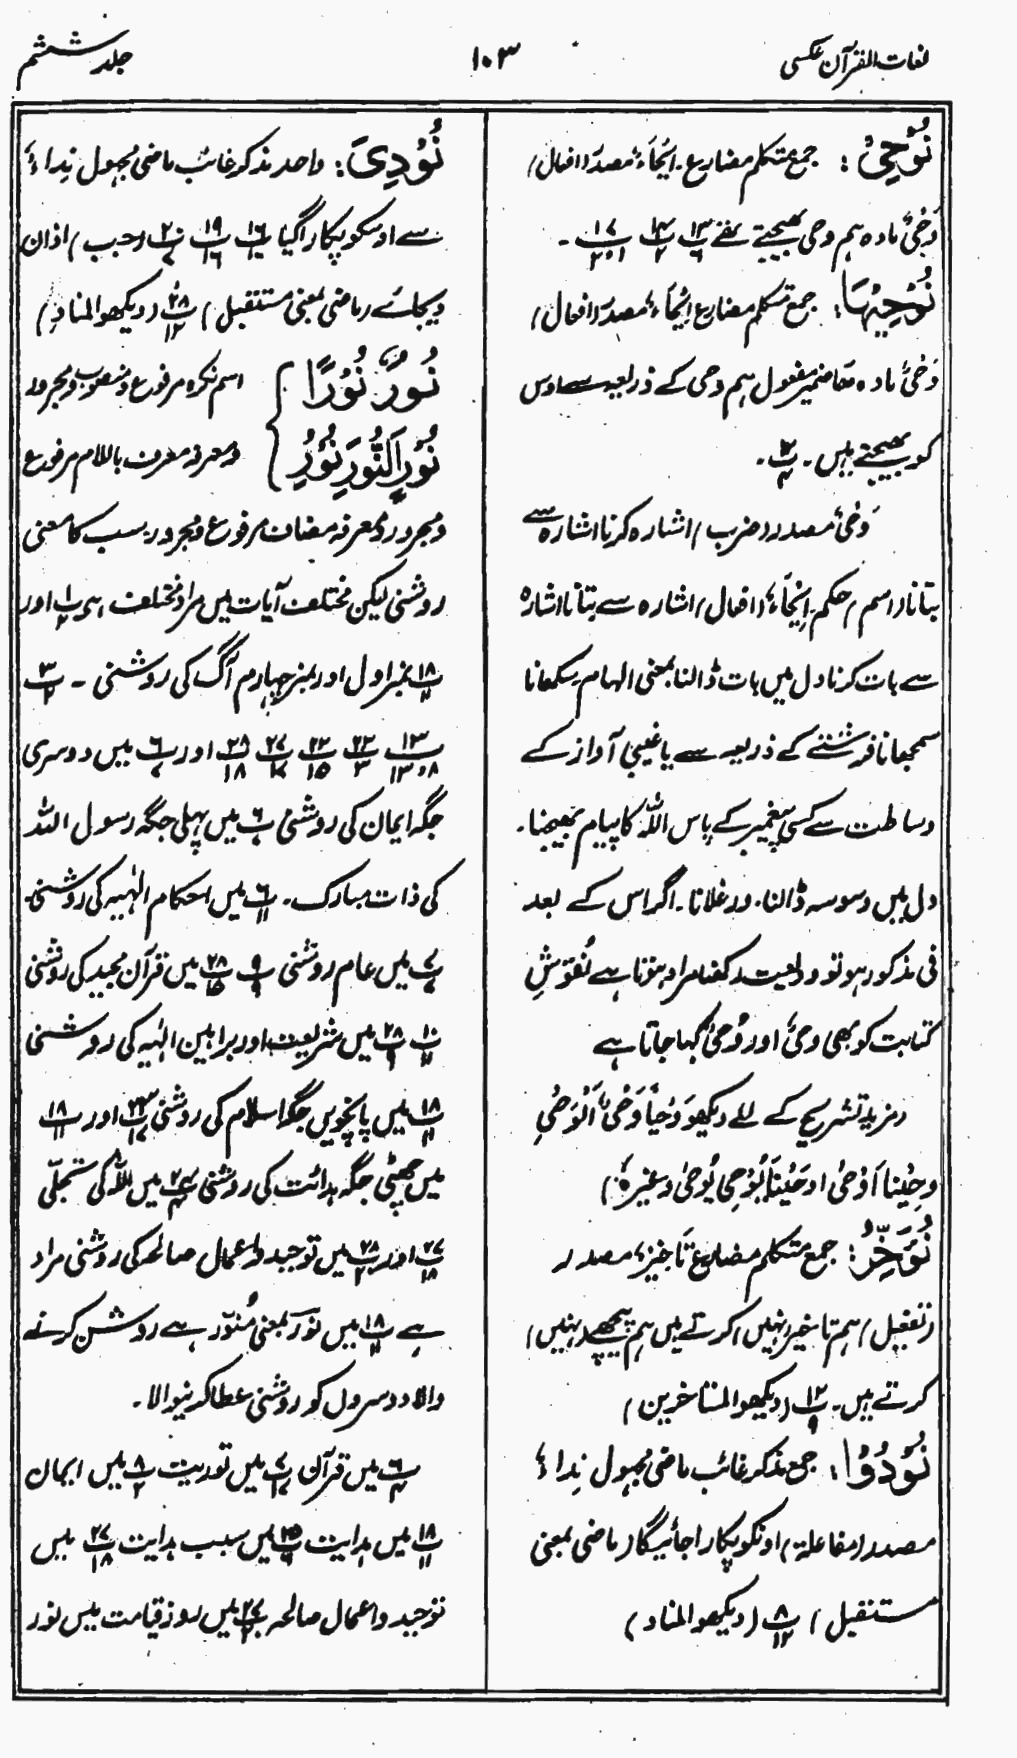 لغات القرآن عکسی
۱۰۳
جلد ششم
نُوْحِیْ: جمع متکلم مضارع۔ اِیْحَاءٌ مصدر (افعال)
وَحْیٌ مادہ ہم وحی بھیجتے تھے پ۱۳/۶ پ۱۴/۲ پ۱۷/۲،۱ ۔
نُوْحِیْہَا: جمع متکلم مضارع اِیْحَاءٌ مصدر (افعال)
وَحْیٌ مادہ ھَا ضمیر مفعول ہم وحی کے ذریعہ سے اوس
کو بھیجتے ہیں۔ پ۱۲/۴ ۔
وَحْیٌ مصدر (ضرب) اشارہ کرنا اشارہ سے
بتانا (اسم) حکم۔ اِیْحَاءٌ (افعال) اشارہ سے بتانا اشارہ
سے بات کرنا دل میں بات ڈالنا بمعنی الہام سکھانا
سمجھانا فرشتے کے ذریعہ سے یا غیبی آواز کے
وساطت سے کسی پیغمبر کے پاس اللہ کا پیام بھیجنا۔
دل میں وسوسہ ڈالنا۔ ورغلانا۔ اگر اس کے بعد
فی مذکور ہو تو ودیعت رکھنا مراد ہوتا ہے نقوشِ
کتابت کو بھی وحیٌ اور وُحِیٌّ کہا جاتا ہے
(مزید تشریح کے لئے دیکھو وَحْیًا وَحْیٌ اَلْوَحْیِ
وحِیْنَا اَوْحٰی اوحَیْنَا یُوْحِی یُوْحٰی وغیرہ)
نُوَخِّرُ: جمع متکلم مضارع تَاخِیْرٌ مصدر
(تفعیل) ہم تاخیر (نہیں) کرتے ہیں ہم پیچھے (نہیں)
کرتے ہیں۔ پ۱۲/۹ (دیکھو المستاخرین)
نُوْدُوْا: جمع مذکر غائب ماضی مجہول نِداءٌ
مصدر (مفاعلۃ) اونکو پکارا جائیگا (ماضی بمعنی
مستقبل) پ۸/۱۲ (دیکھو المناد)
نُوْدِیَ: واحد مذکر غائب ماضی مجہول نِداءٌ
سے اوسکو پکارا گیا پ۱۶ پ۱۹ پ۲۰/۷ (جب) اذان
دیجائے (ماضی بمعنی مستقبل) پ۲۸/۱۲ (دیکھو المنادِ)
نُورٌ، نُوْرًا اسم نکرہ مرفوع و منصوب و مجرور
نُوْرٍ اَلنُّوْرَ نُوْرُ و معرفہ معرف باللام مرفوع
و مجرور و معرفہ مضاف مرفوع و مجرور۔ سب کا معنی
روشنی لیکن مختلف آیات میں مراد مختلف ہے پ۱/۲ اور
پ۱۸/۱۱ نمبر اول اور نمبر چہارم آگ کی روشنی ۔ پ۳/۲
پ۱۳/۱۳،۸ پ۲۲/۳ پ۲۲/۱۵ پ۲۷/۱۷ پ۲۸/۱۸ اور پ۶/۷ میں دوسری
جگہ ایمان کی روشنی پ۶/۷ میں پہلی جگہ رسول اللہ
کی ذات مبارک۔ پ۶/۱۱ میں احکام الٰہیہ کی روشنی۔
پ۷/۷ میں عام روشنی پ۹/۹ پ۲۸/۱۵ میں قرآن مجید کی روشنی
پ۱۰/۱۱ پ۲۸/۹ میں شریعت اور براہین الٰہیہ کی روشنی
پ۱۸/۱۱ میں پانچویں جگہ اسلام کی روشنی پ۲۳/۱۷ اور پ۱۸/۱۱
میں چھٹی جگہ ہدائت کی روشنی پ۲۴/۴ میں اللہ کی تجلّی
پ۲۷/۱۸ اور پ۲۸/۲۰ میں توحید و اعمال صالحہ کی روشنی مراد
ہے پ۱۸/۱۱ میں نُوْر بمعنی مُنَوِّر ہے روشن کرنے
والا دوسروں کو روشنی عطا کرنیوالا۔
پ۶/۴ میں قرآن پ۷/۱۷ میں توریت پ۸/۲ میں ایمان
پ۱۸/۱۱ میں ہدایت پ۲۵/۶ میں سبب ہدایت پ۲۷/۱۸ میں
توحید و اعمال صالحہ پ۲۸/۲۰ میں روز قیامت میں نور